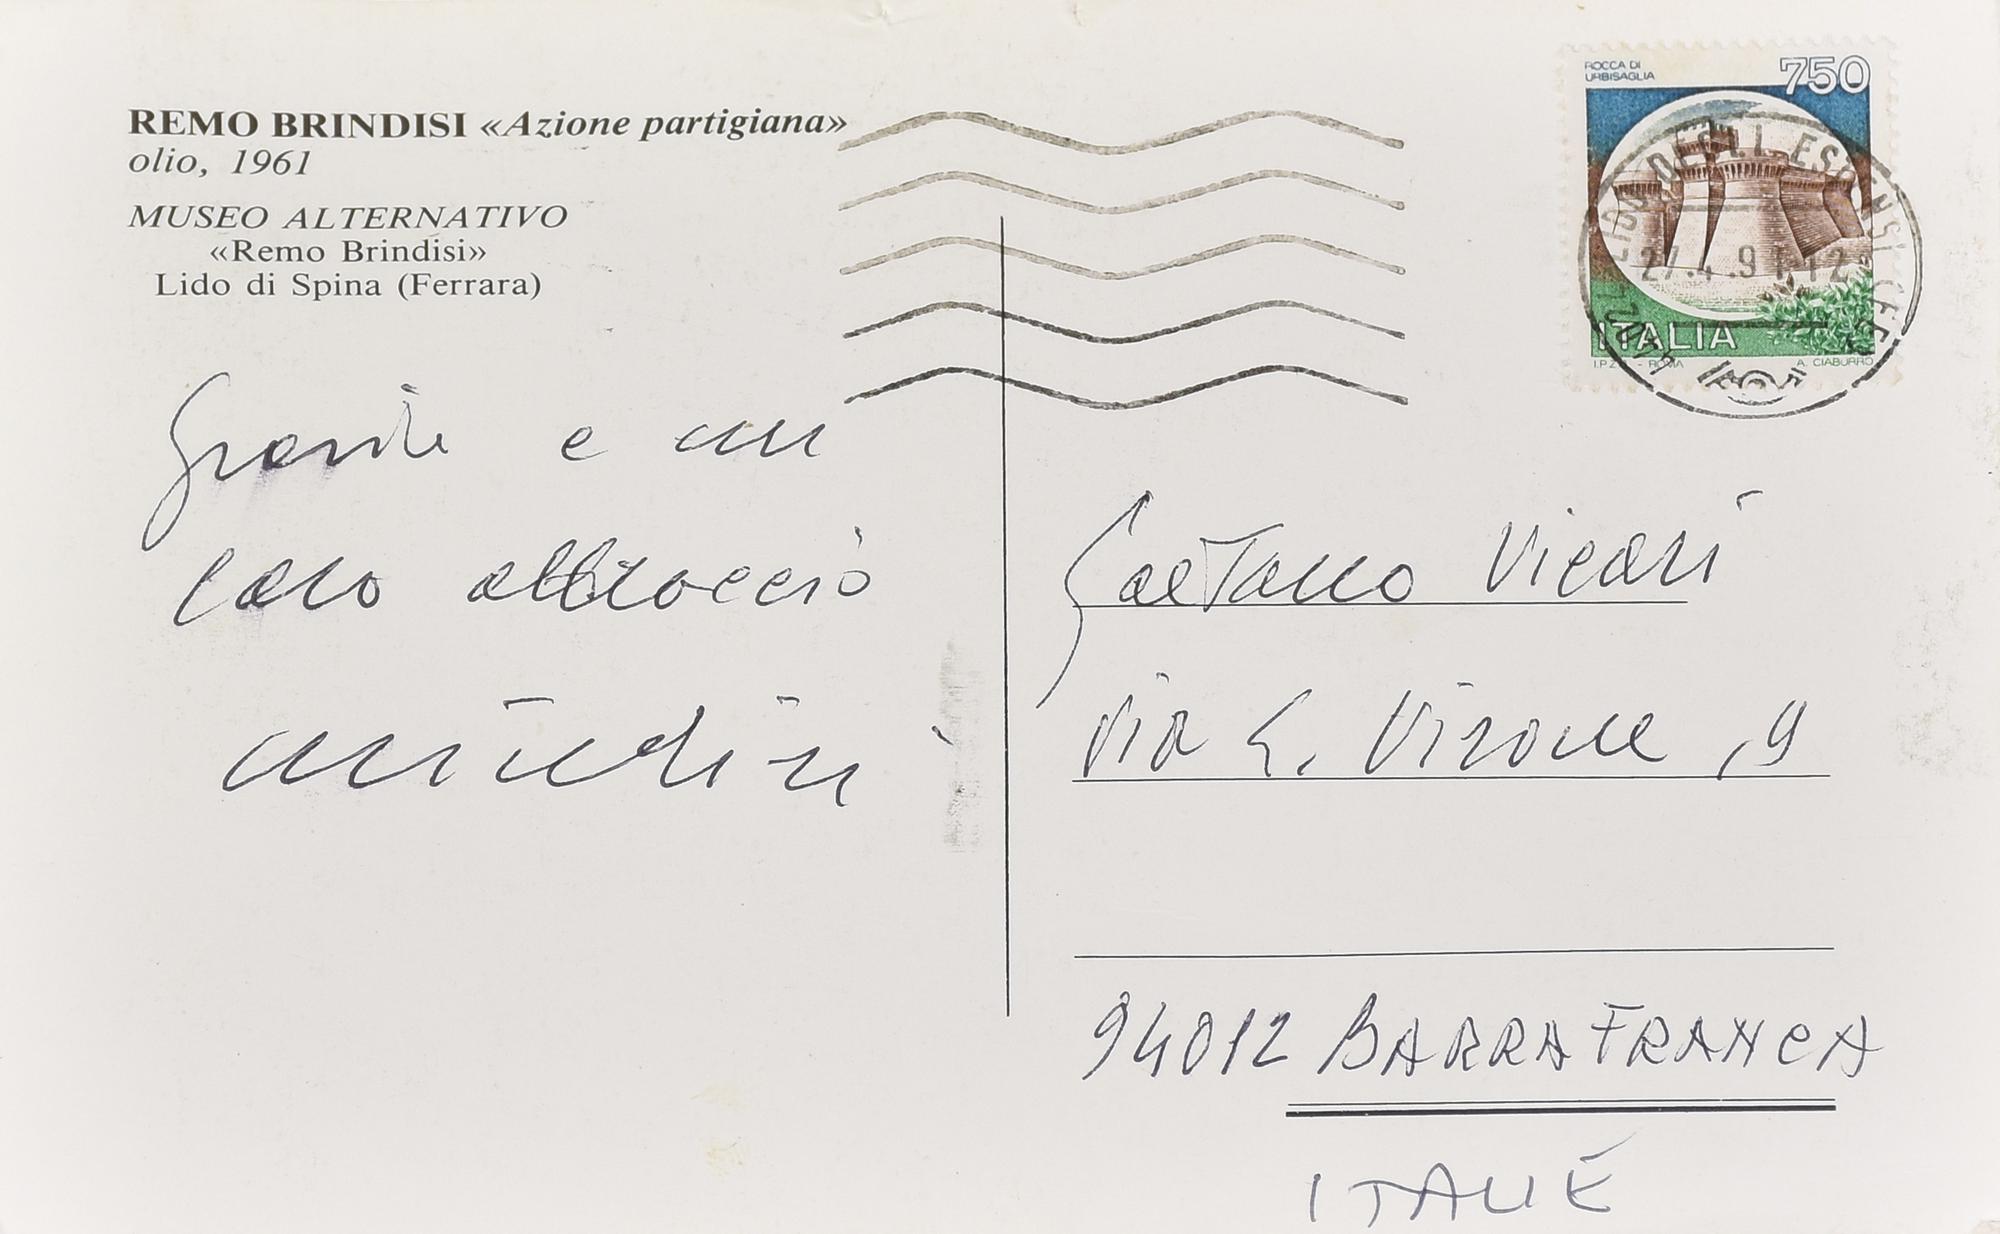 REMO BRINDISI «Azione partigiana»
olio, 1961
MUSEO ALTERNATIVO
«Remo Brindisi»
Lido di Spina (Ferrara)
Grazie e un
caro abbraccio
ROCCA DI
URBISAGLIA
750
LIDO DEGLI ESTENSI (FE)
27.4.91.12
ITALIA
I.P.Z.S. - ROMA
A. CIABURRO
Gaetano Vicari
Via G. Virone, 9
94012 BARRAFRANCA
ITALIE